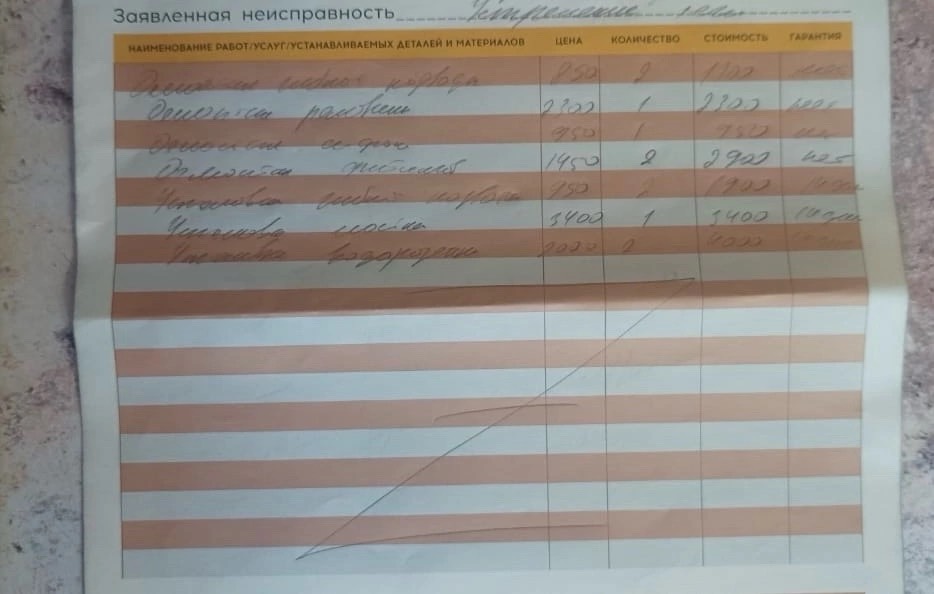 Заявленная неисправность Устранение течи
НАИМЕНОВАНИЕ РАБОТ/УСЛУГ/УСТАНАВЛИВАЕМЫХ ДЕТАЛЕЙ И МАТЕРИАЛОВ ЦЕНА КОЛИЧЕСТВО СТОИМОСТЬ ГАРАНТИЯ
Демонтаж гибкой подвода 850 2 1700 нет
Демонтаж раковины 2300 1 2300 нет
Демонтаж сифона 950 1 950 нет
Демонтаж 1450 2 2900 нет
Установка гибкой подвода 950 2 1900
Установка 3400 1 3400
Установка 2000 2 4000